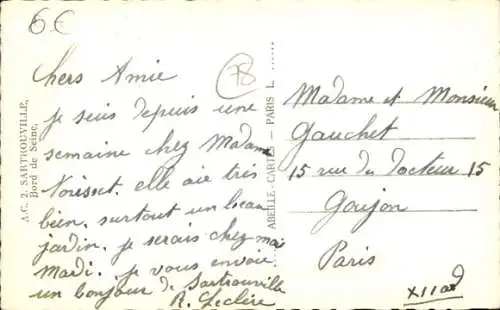 6€
Chers Amie
je suis depuis une
semaine chez Madame
Noisset. elle aie très
bien. surtout un beau
jardin. je serais chez moi
Mardi. je vous envoie
un bonjour de Sartrouville
R. Leclère
A.C. 2. SARTROUVILLE,
Bord de Seine,
ABEILLE-CARTES — PARIS
Madame et Monsieur
Gauchet
15 rue du Docteur 15
Goujon
Paris
XII ard